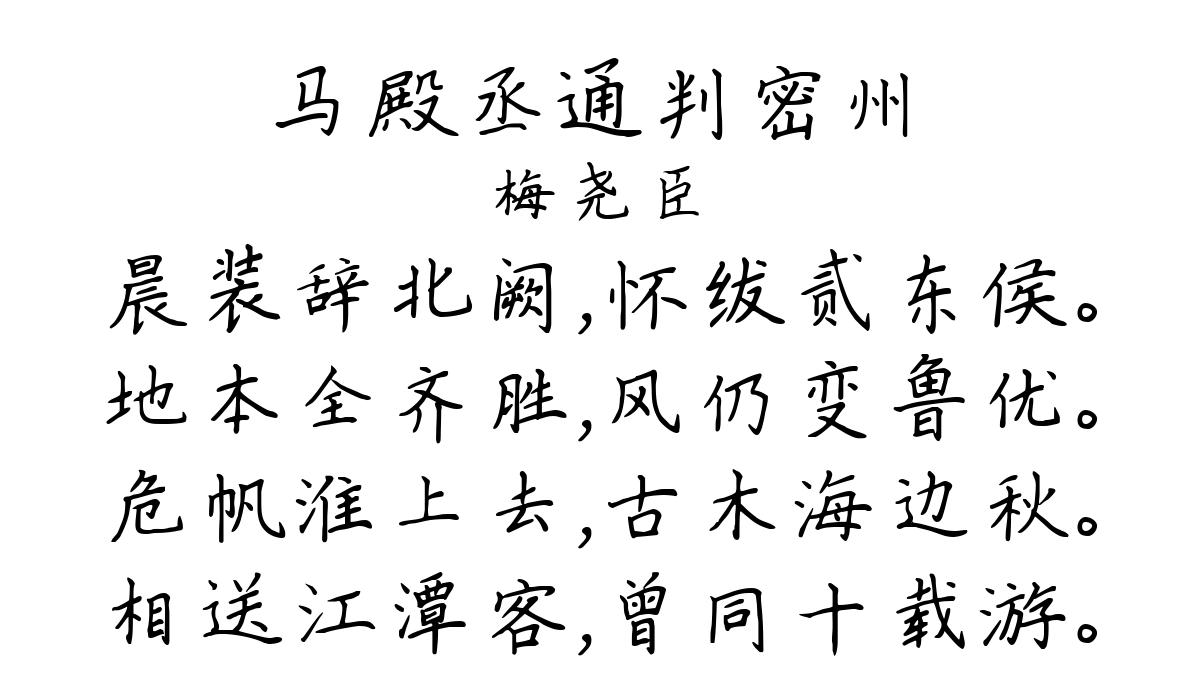 马殿丞通判密州
梅尧臣
晨装辞北阙,怀绂贰东侯。
地本全齐胜,风仍变鲁优。
危帆淮上去,古木海边秋。
相送江潭客,曾同十载游。